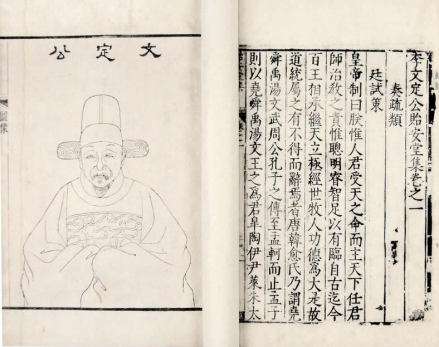 李文定公貽安堂集卷之一
奏疏類
廷試策
皇帝制曰朕惟人君受天之命而主天下任君
師治教之責惟聰明睿智足以有臨自古迄今
百王相承繼天立極經世牧人功德爲大是故
道統屬之有不得而辭焉者唐韓愈氏乃謂堯
舜禹湯文武周公孔子之傳至孟軻而止孟子
則以堯舜禹湯文王之爲君臯陶伊尹萊朱太
文定公